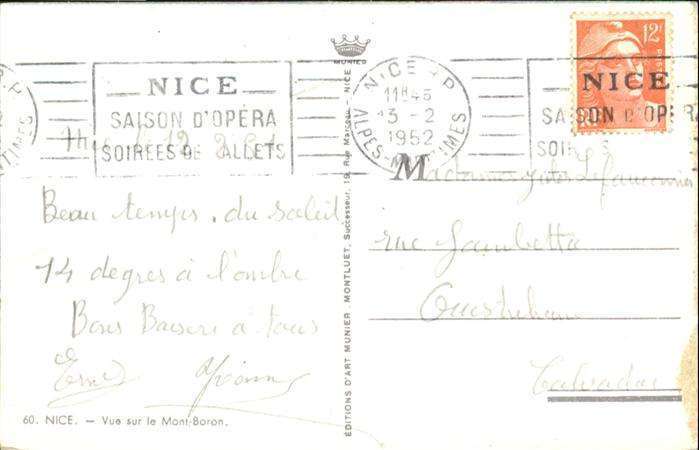 MUNIER
NICE
SAISON D'OPÉRA
SOIRÉES DE BALLETS
NICE R.P
11H45
3-2
1952
ALPES-MARITIMES
12F
POSTES
NICE
SAISON D'OPÉRA
Beau temps. du soleil
14 degres à l'ombre
Bons Baisers à tous
Yvonne
60. NICE. — Vue sur le Mont-Boron.
ÉDITIONS D'ART MUNIER, MONTLUET, Successeur, 19, Rue Marceau - NICE
Madame
rue Gambetta
Ouistreham
Calvados